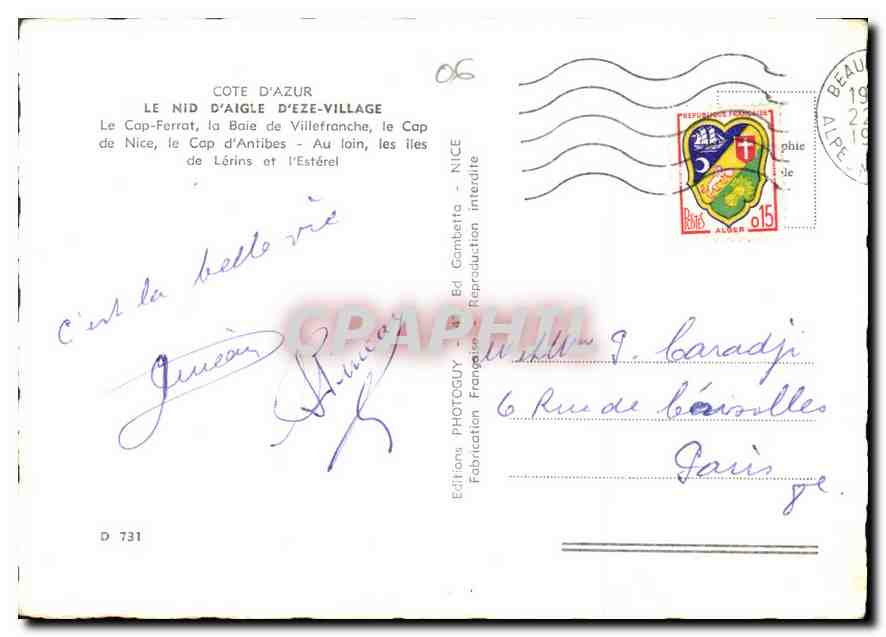 06
COTE D'AZUR
LE NID D'AIGLE D'EZE-VILLAGE
Le Cap-Ferrat, la Baie de Villefranche, le Cap
de Nice, le Cap d'Antibes - Au loin, les îles
de Lérins et l'Estérel
c'est la belle vie
D 731
Editions PHOTOGUY - Bd Gambetta - NICE
Fabrication Française - Reproduction interdite
CPAPHIL
REPUBLIQUE FRANÇAISE
POSTES
0,15
ALGER
phie
le
BEAU
19
22
19
ALPE
M
J. Caradji
6 Rue de
Paris